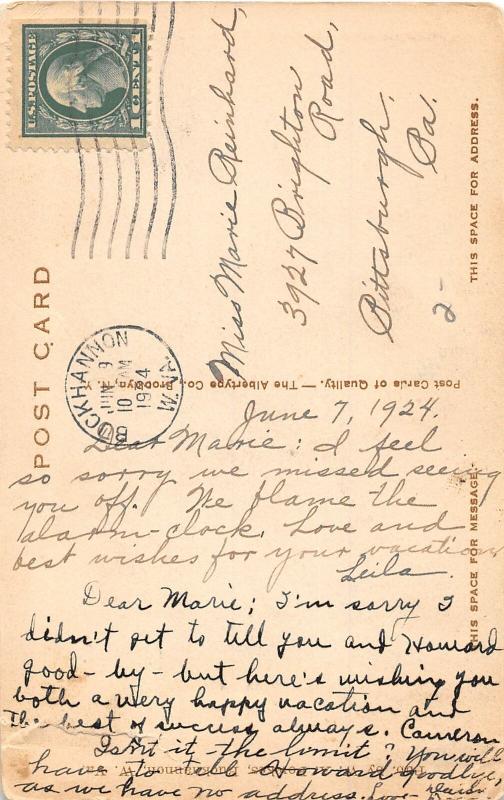 U.S. POSTAGE
1 CENT 1
POST CARD
BUCKHANNON
JUN 9
10 AM
1924
W. VA.
Miss Marie Reinhard,
3927 Brighton
Road,
Pittsburgh,
Pa.
2-
THIS SPACE FOR ADDRESS.
Post Cards of Quality. — The Albertype Co., Brooklyn, N. Y.
THIS SPACE FOR MESSAGE.
June 7, 1924.
Dear Marie: I feel
so sorry we missed seeing
you off. We blame the
alarm-clock. Love and
best wishes for your vacation
Leila.
Dear Marie; I'm sorry I
didn't get to tell you and Howard
good-by- but here's wishing you
both a very happy vacation and
the best of success always. Cameron
Isn't it the limit? You will
have to tell Howard goodbye,
as we have no address. Love-
Buckhannon, W. Va.